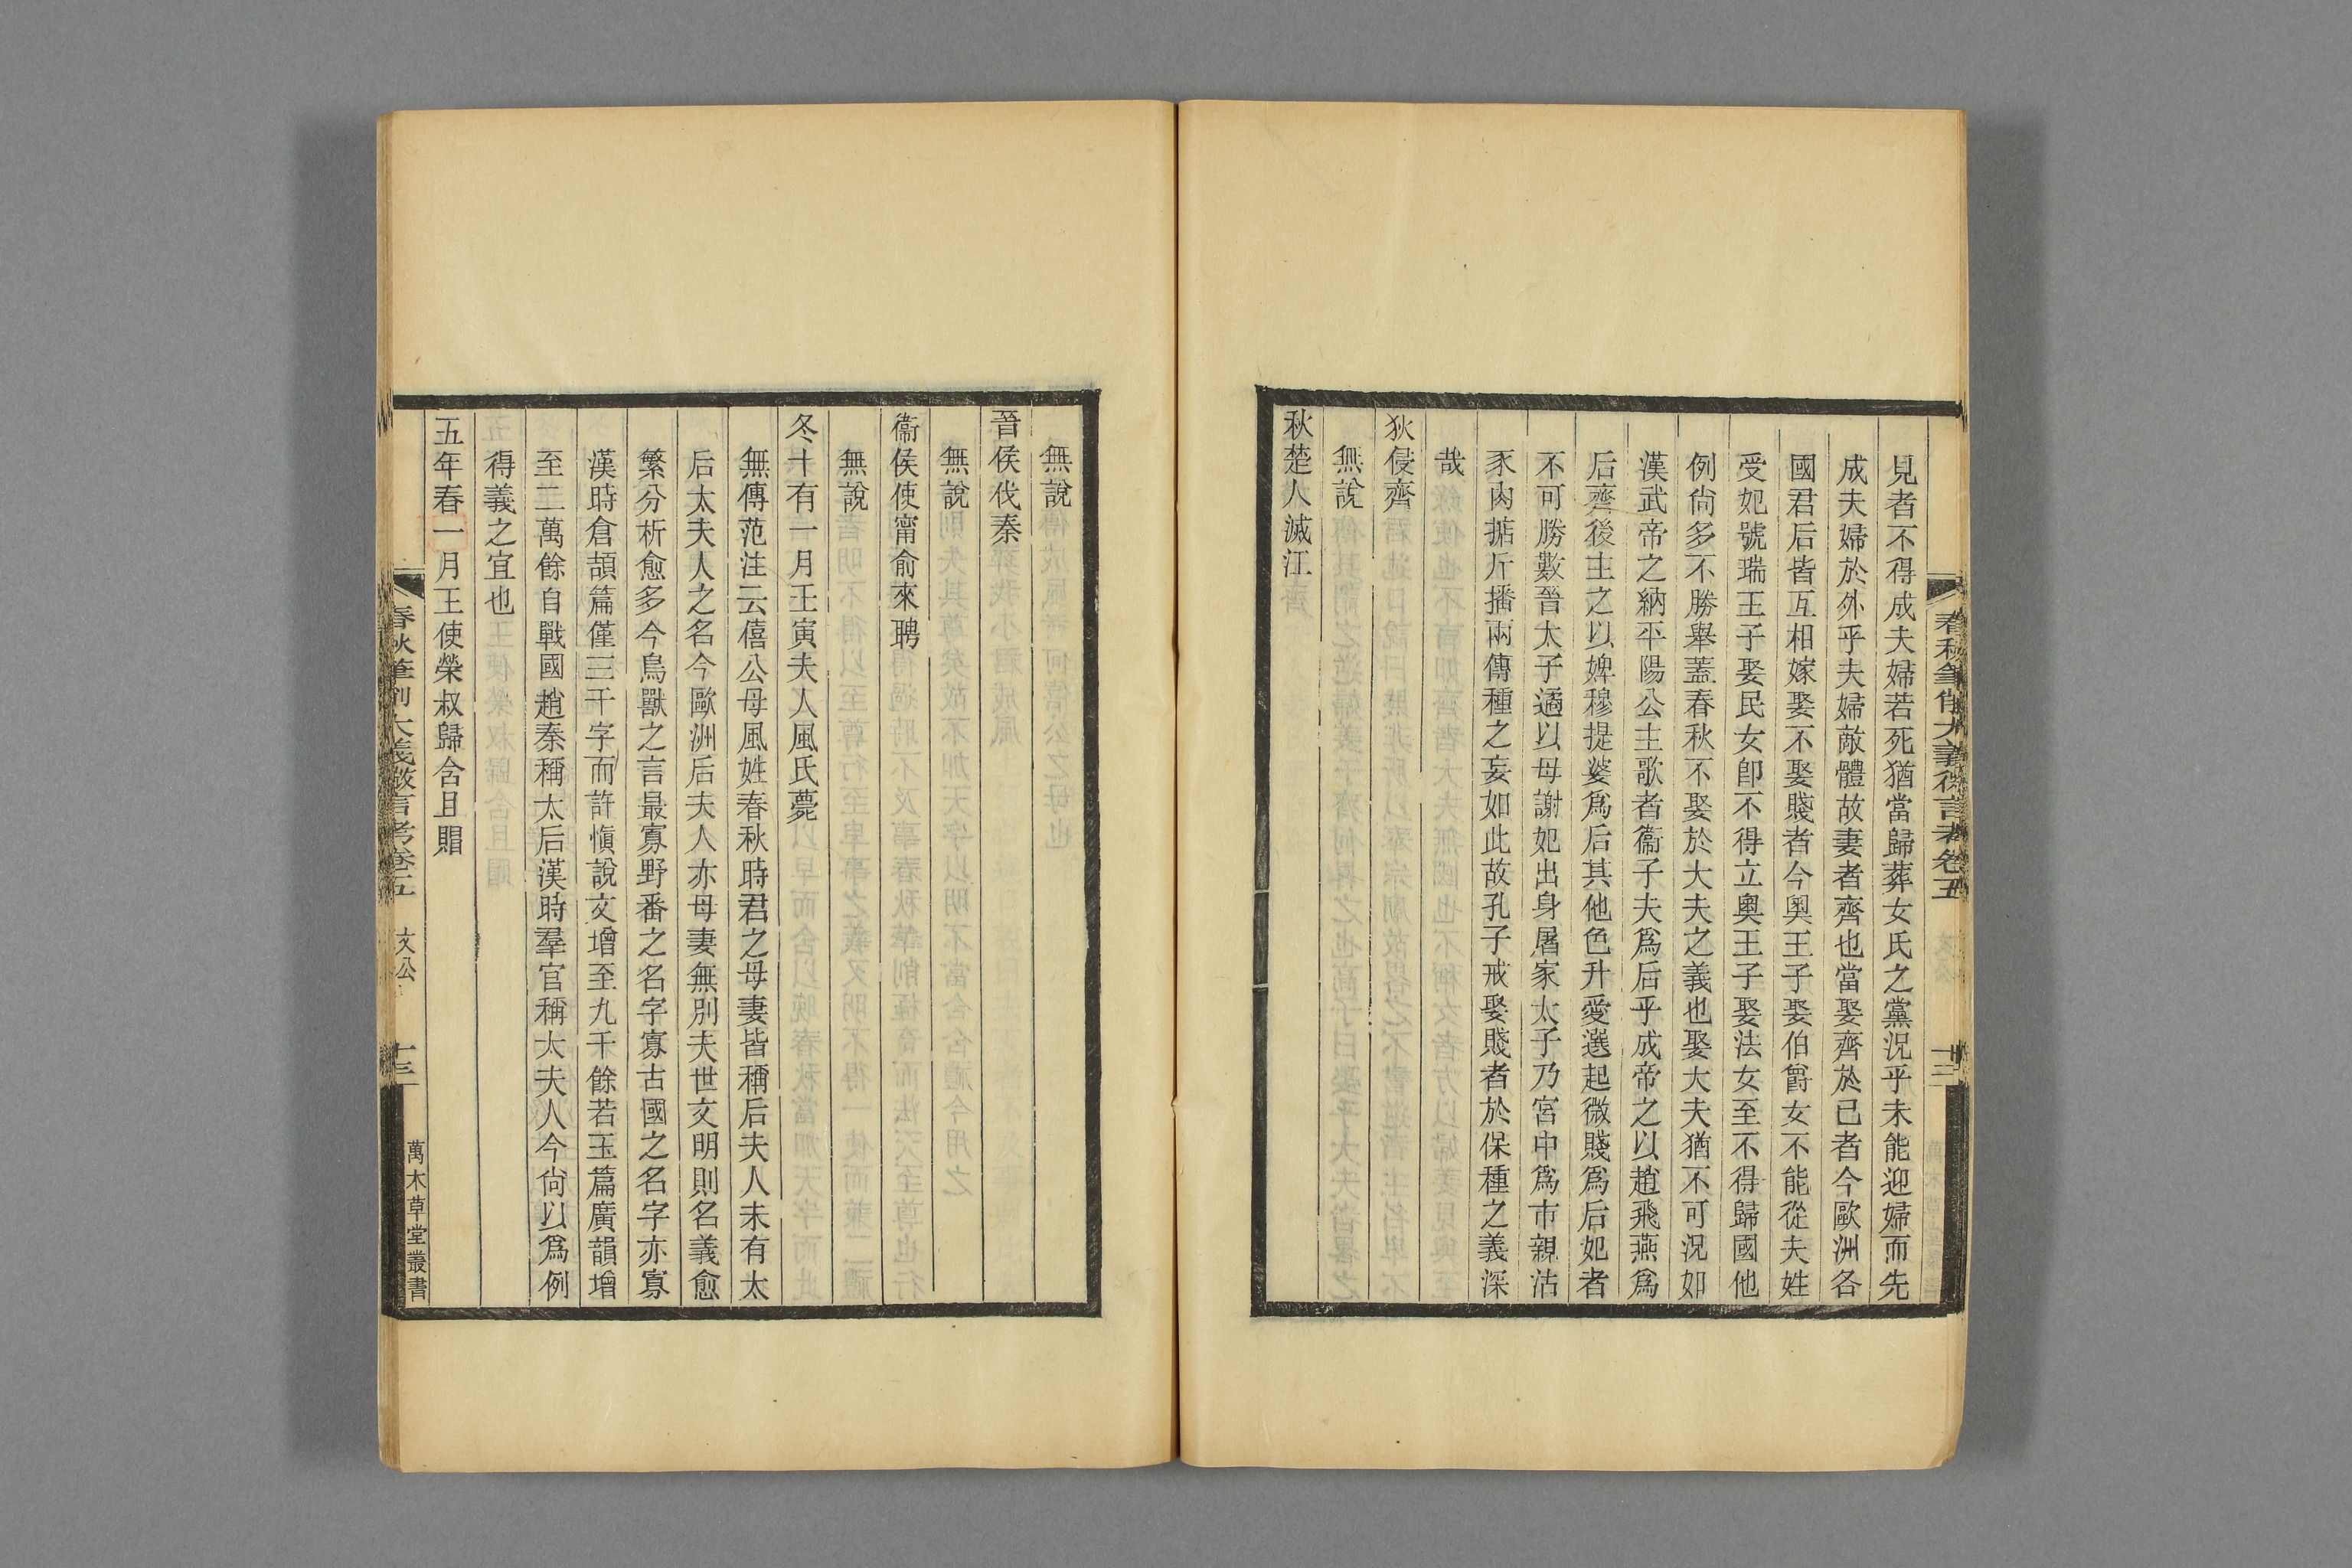 春秋筆削大義微言考卷五
十二
見者不得成夫婦若死猶當歸葬女氏之黨況乎未能迎婦而先
成夫婦於外乎夫婦敵體故妻者齊也當娶齊於己者今歐洲各
國君后皆互相嫁娶不娶賤者今奧王子娶伯爵女不能從夫姓
受妃號瑞王子娶民女卽不得立奧王子娶法女至不得歸國他
例尙多不勝舉蓋春秋不娶於大夫之義也娶大夫猶不可況如
漢武帝之納平陽公主歌者衞子夫爲后乎成帝之以趙飛燕爲
后齊後主之以婢穆提婆爲后其他色升愛選起微賤爲后妃者
不可勝數晉太子遹以母謝妃出身屠家太子乃宮中爲市親沽
豕肉掂斤播兩傳種之妄如此故孔子戒娶賤者於保種之義深
哉
狄侵齊
無說
秋楚人滅江
無說
晉侯伐秦
無說
衞侯使甯俞來聘
無說
冬十有一月王寅夫人風氏薨
無傳范注云僖公母風姓春秋時君之母妻皆稱后夫人未有太
后太夫人之名今歐洲后夫人亦母妻無別夫世文明則名義愈
繁分析愈多今鳥獸之言最寡野番之名字寡古國之名字亦寡
漢時倉頡篇僅三千字而許愼說文增至九千餘若玉篇廣韻增
至二萬餘自戰國趙秦稱太后漢時羣官稱太夫人今尙以爲例
得義之宜也
五年春一月王使榮叔歸含且賵
春秋筆削大義微言考卷五
文公
十三
萬木草堂叢書